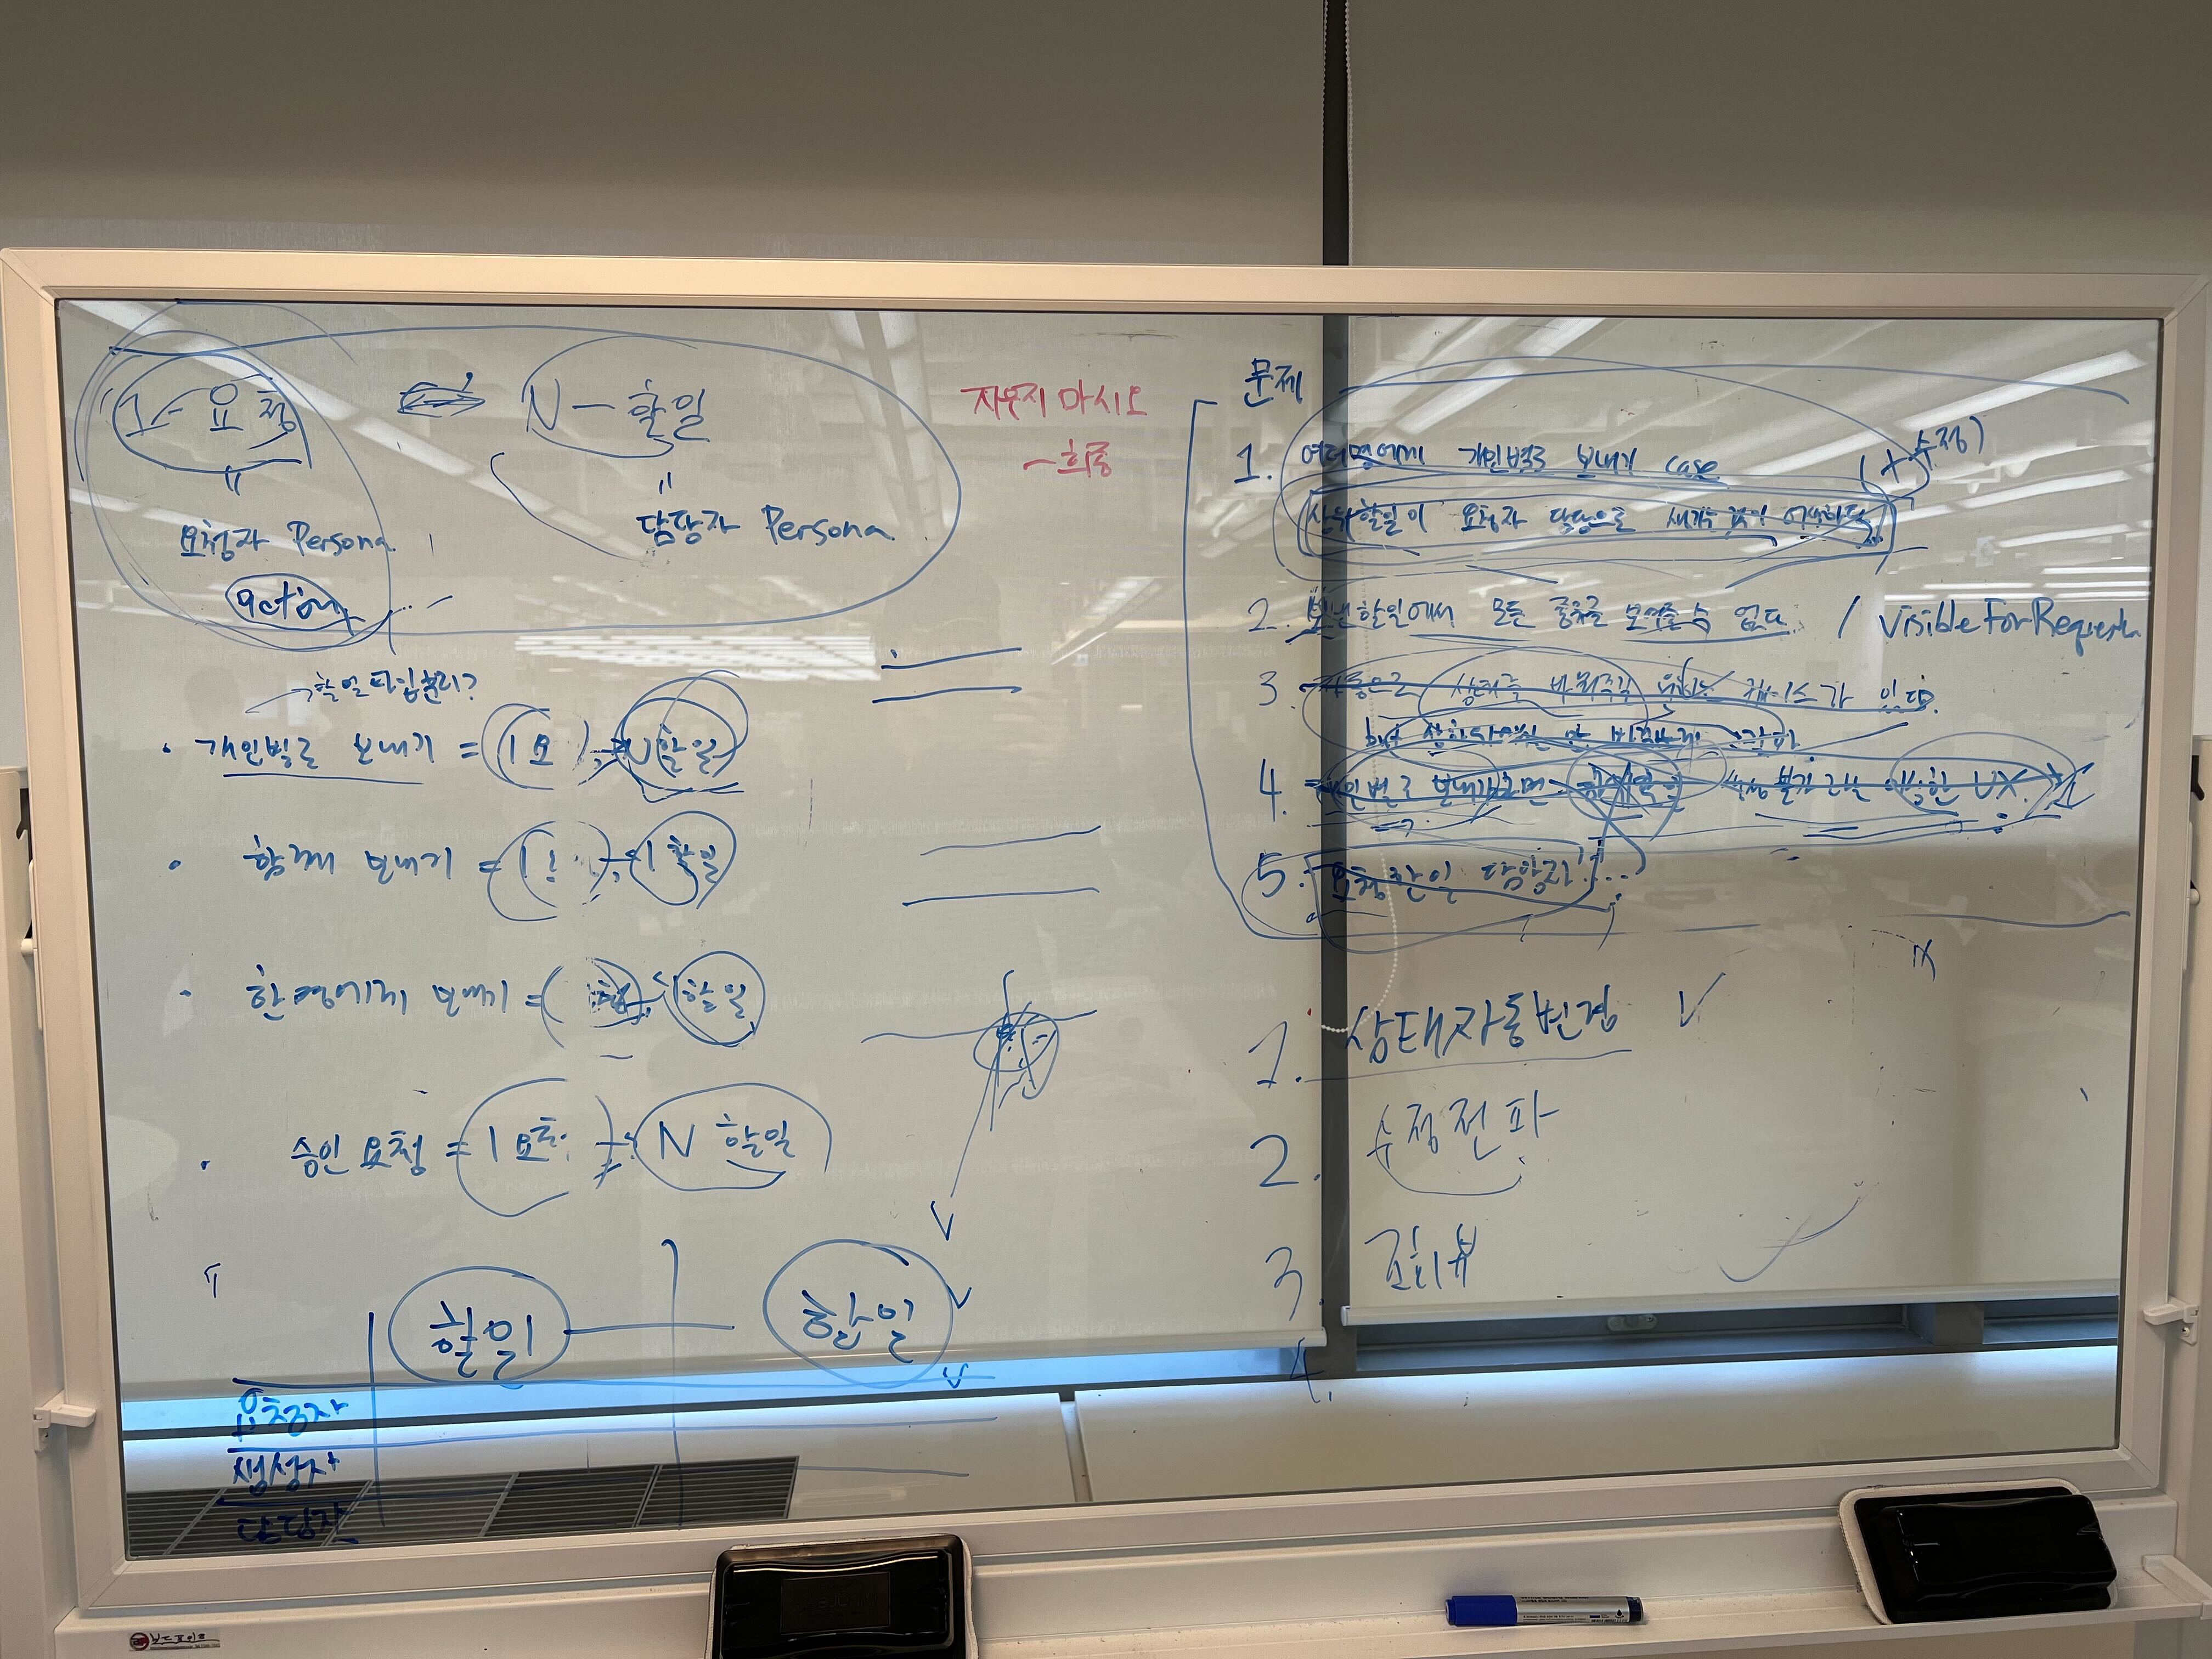 1 - 요청
N - 할일
"
"
요청자 Persona
담당자 Persona
action
지우지 마시오
- 희종
할일타입분리?
· 개인별로 보내기 = 1요 : N할일
· 함께 보내기 = 1 : 1 할일
· 한명에게 보내기 = : 할일
· 승인 요청 = 1 요청 : N 할일
할일
할일
요청자
생성자
담당자
문제
1. 여러명에게 개인별로 보내기 case
(+ 수정)
상위할일이 요청자 담당으로 새기는 것이 어색하다
2. 보낸할일에서 모든 종류를 보여줄 수 없다. / visibleForRequest
3. 자동으로 상태를 바꿔주길 원하는 케이스가 있다.
but
4. 개인별로 수정 불가 라는 UX.
5. 요청할일 담당자!
1. 상태자동변경 ✓
2. 수정전파
3.
4.
보드포인트